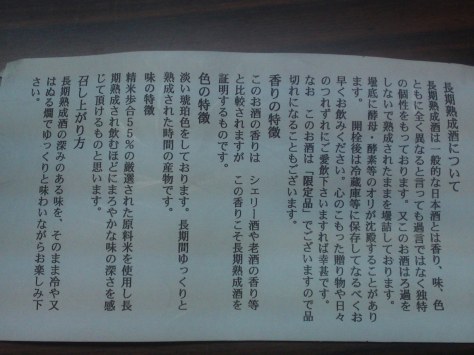 長期熟成酒について
長期熟成酒は一般的な日本酒とは香り、味、色
ともに全く異なると言っても過言ではなく独特
の個性をもっております。又このお酒はろ過を
しないで熟成されたままを壜詰しております。
壜底に酵母・酵素等のオリが沈殿することがあり
ます。 開栓後は冷蔵庫等に保存してなるべくお
早くお飲みください。心のこもった贈り物や日々
のつれずれにご愛飲下さいますれば幸甚です。
なお このお酒は「限定品」でございますので品
切れになることもございます。
香りの特徴
このお酒の香りは シェリー酒や老酒の香り等
と比較されますが この香りこそ長期熟成酒を
証明するものです。
色の特徴
淡い琥珀色をしております。長期間ゆっくりと
熟成された時間の産物です。
味の特徴
精米歩合55%の厳選された原料米を使用し長
期熟成され飲むほどにまろやかな味の深さを感
じて頂けるものと思います。
召し上がり方
長期熟成酒の深みのある味を、そのまま冷や又
はぬる燗でゆっくりと味わいながらお楽しみ下
さい。